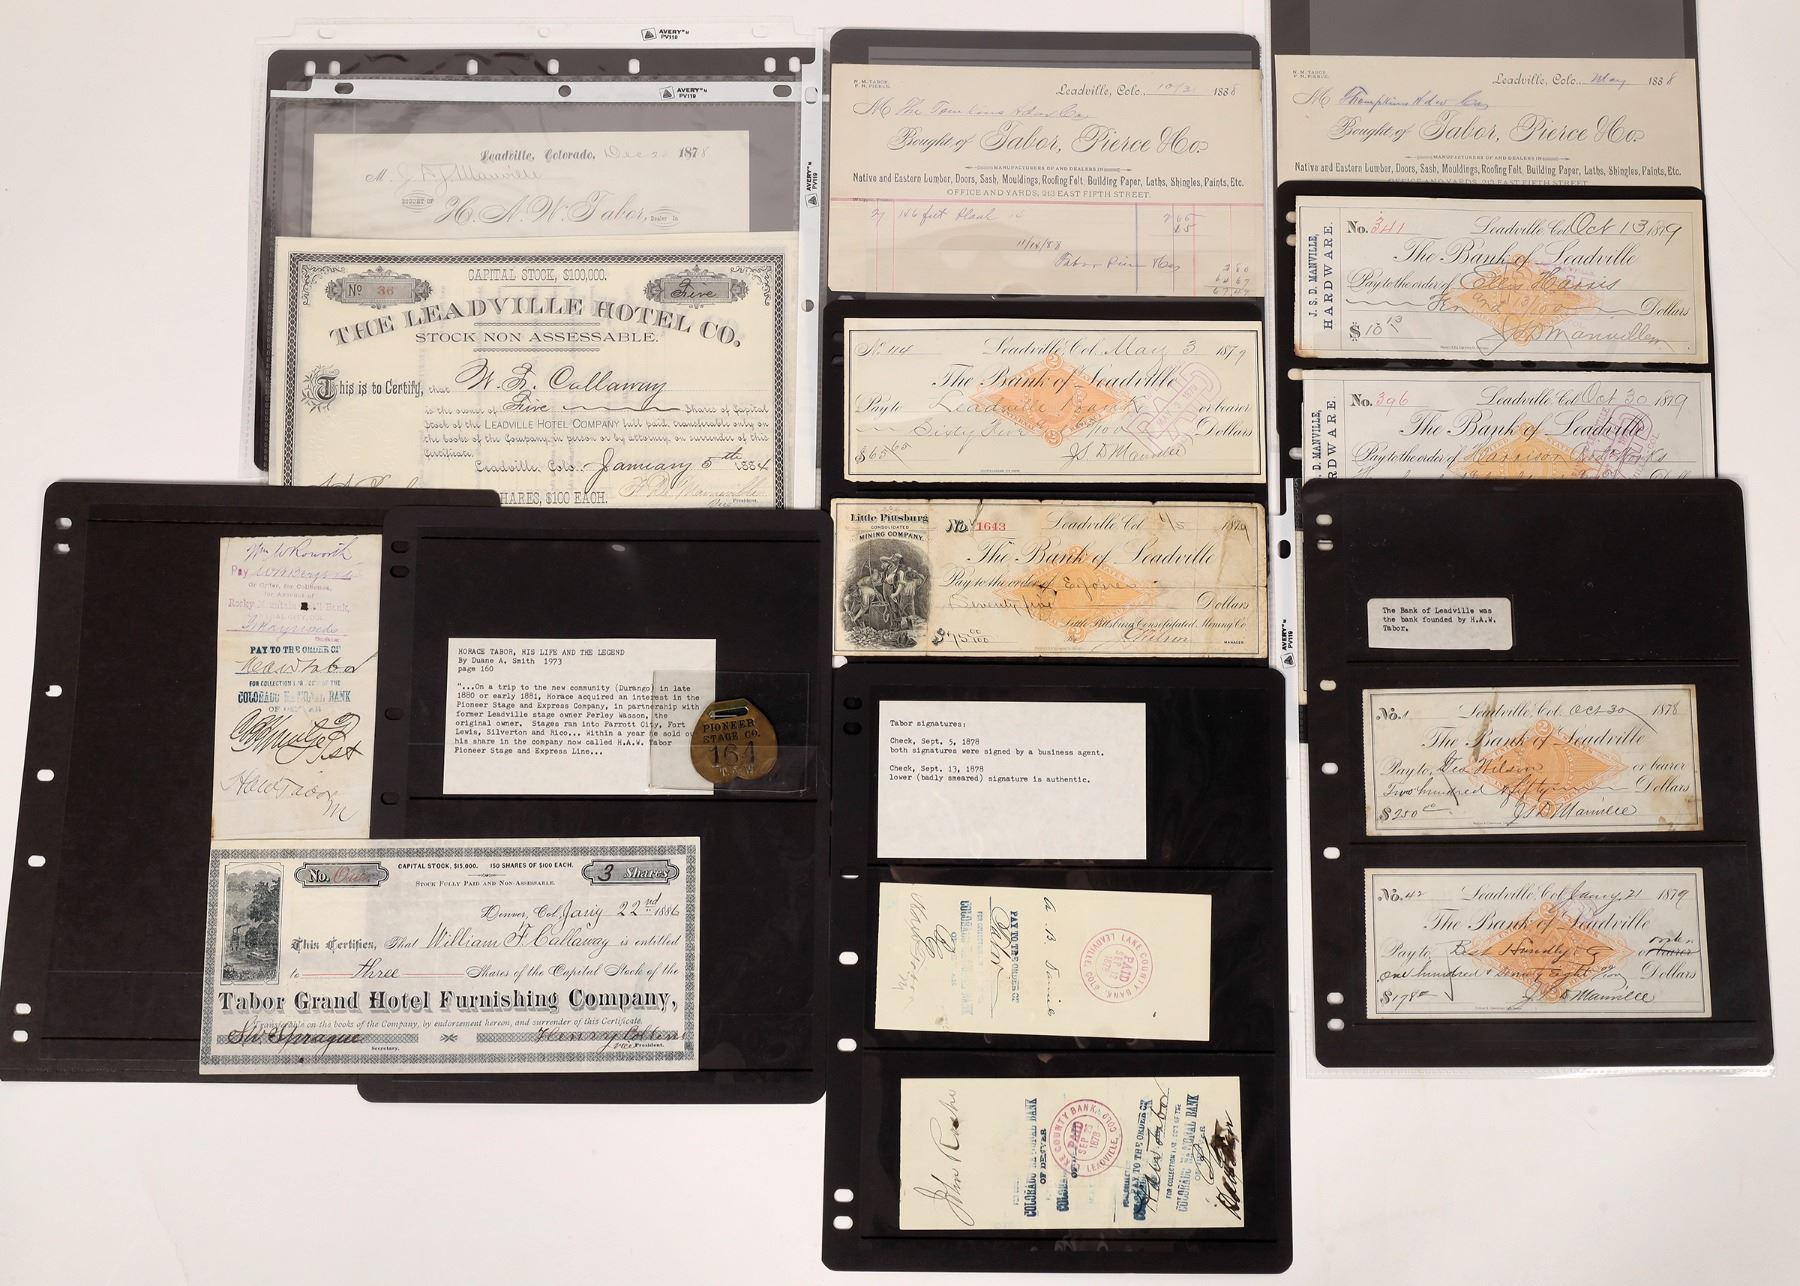 AVERY
PV119
AVERY
PV119
Leadville, Colorado, Dec 1878
M. J. S. D. Manville
BOUGHT OF
H. A. W. Tabor, Dealer In
CAPITAL STOCK, $100,000.
No 36
Five
THE LEADVILLE HOTEL CO.
STOCK NON ASSESSABLE.
This is to Certify, that W. F. Callaway
is the owner of Five Shares of Capital
Stock of the LEADVILLE HOTEL COMPANY full paid, transferable only on
the books of the Company in person or by attorney on surrender of this
Certificate.
Leadville, Colo. January 5th 1884
SHARES, $100 EACH.
President.
N. M. TABOR.
F. N. PIERCE.
Leadville, Colo., 10/31 1888
M The Tomkins Hdw Co
Bought of Tabor, Pierce & Co.
MANUFACTURERS OF AND DEALERS IN
Native and Eastern Lumber, Doors, Sash, Mouldings, Roofing Felt, Building Paper, Laths, Shingles, Paints, Etc.
OFFICE AND YARDS, 213 EAST FIFTH STREET.
27 146 feet Plank
2 65
15
11/14/88
Tabor Pierce & Co
2 80
64 67
67 47
AVERY
PV119
N. M. TABOR.
F. N. PIERCE.
Leadville, Colo., May 1888
M Thompkins Hdw Co
Bought of Tabor, Pierce & Co.
MANUFACTURERS OF AND DEALERS IN
Native and Eastern Lumber, Doors, Sash, Mouldings, Roofing Felt, Building Paper, Laths, Shingles, Paints, Etc.
OFFICE AND YARDS, 213 EAST FIFTH STREET
No. 114 Leadville, Col. May 3 1879
The Bank of Leadville
Pay to Leadville Bank or bearer
Sixty Five /100 Dollars
$65.65 J S D Manville
PAID
MAY 3 1879
Little Pittsburg
CONSOLIDATED
MINING COMPANY.
No. 1643 Leadville Col 1/5 1879
The Bank of Leadville
Pay to the order of E Jones
Seventy five Dollars
Little Pittsburg Consolidated Mining Co
$75 00/100 Wilson
MANAGER
J. S. D. MANVILLE,
HARDWARE.
No. 341 Leadville, Col. Oct 13 1879
The Bank of Leadville
Pay to the order of Ellis Harris
Ten and 13/100 Dollars
$10 13 J S D Manville
J. S. D. MANVILLE,
HARDWARE.
No. 396 Leadville, Col. Oct 30 1879
The Bank of Leadville
Pay to the order of Harrison Red Works
AVERY
PV119
The Bank of Leadville was
the bank founded by H.A.W.
Tabor.
No. 1 Leadville, Col. Oct 30 1878
The Bank of Leadville
Pay to Geo Wilson or bearer
Two hundred & fifty Dollars
$250 00 J S D Manville
No. 42 Leadville, Col. Jany 21 1879
The Bank of Leadville
Pay to Best Hundly & Co order
or bearer
One hundred & Seventy Eight Dollars
$178 00 J S D Manville
Pay
Or Order, for Collection,
for Account of
Rocky Mountain National Bank,
CENTRAL CITY, COL.
PAY TO THE ORDER OF
H A W Tabor
FOR COLLECTION FOR A/C OF THE
COLORADO NATIONAL BANK
OF DENVER
H A W Tabor
HORACE TABOR, HIS LIFE AND THE LEGEND
By Duane A. Smith 1973
page 160
"...On a trip to the new community (Durango) in late
1880 or early 1881, Horace acquired an interest in the
Pioneer Stage and Express Company, in partnership with
former Leadville stage owner Perley Wasson, the
original owner. Stages ran into Parrott City, Fort
Lewis, Silverton and Rico... Within a year he sold out
his share in the company now called H.A.W. Tabor
Pioneer Stage and Express Line...
PIONEER
STAGE CO.
164
No.
CAPITAL STOCK, $15,000. 150 SHARES OF $100 EACH.
STOCK FULLY PAID AND NON-ASSESSABLE.
3 Shares
Denver, Col. Jan'y 22nd 1886
This Certifies, That William F. Callaway is entitled
to three Shares of the Capital Stock of the
Tabor Grand Hotel Furnishing Company,
Transferable on the books of the Company, by endorsement hereon, and surrender of this Certificate.
Sprague
Secretary.
Henry
Vice President.
Tabor signatures:
Check, Sept. 5, 1878
both signatures were signed by a business agent.
Check, Sept. 13, 1878
lower (badly smeared) signature is authentic.
PAY TO THE ORDER OF
COLORADO NATIONAL BANK
LAKE COUNTY BANK
PAID
SEP 12
1878
LEADVILLE, COLO
John Roche
COLORADO NATIONAL BANK
OF DENVER
LAKE COUNTY BANK,
PAID
SEP 23
1878
LEADVILLE, COLO
PAY TO THE ORDER OF
H A W Tabor
FOR COLLECTION FOR A/C OF THE
COLORADO NATIONAL BANK
OF DENVER